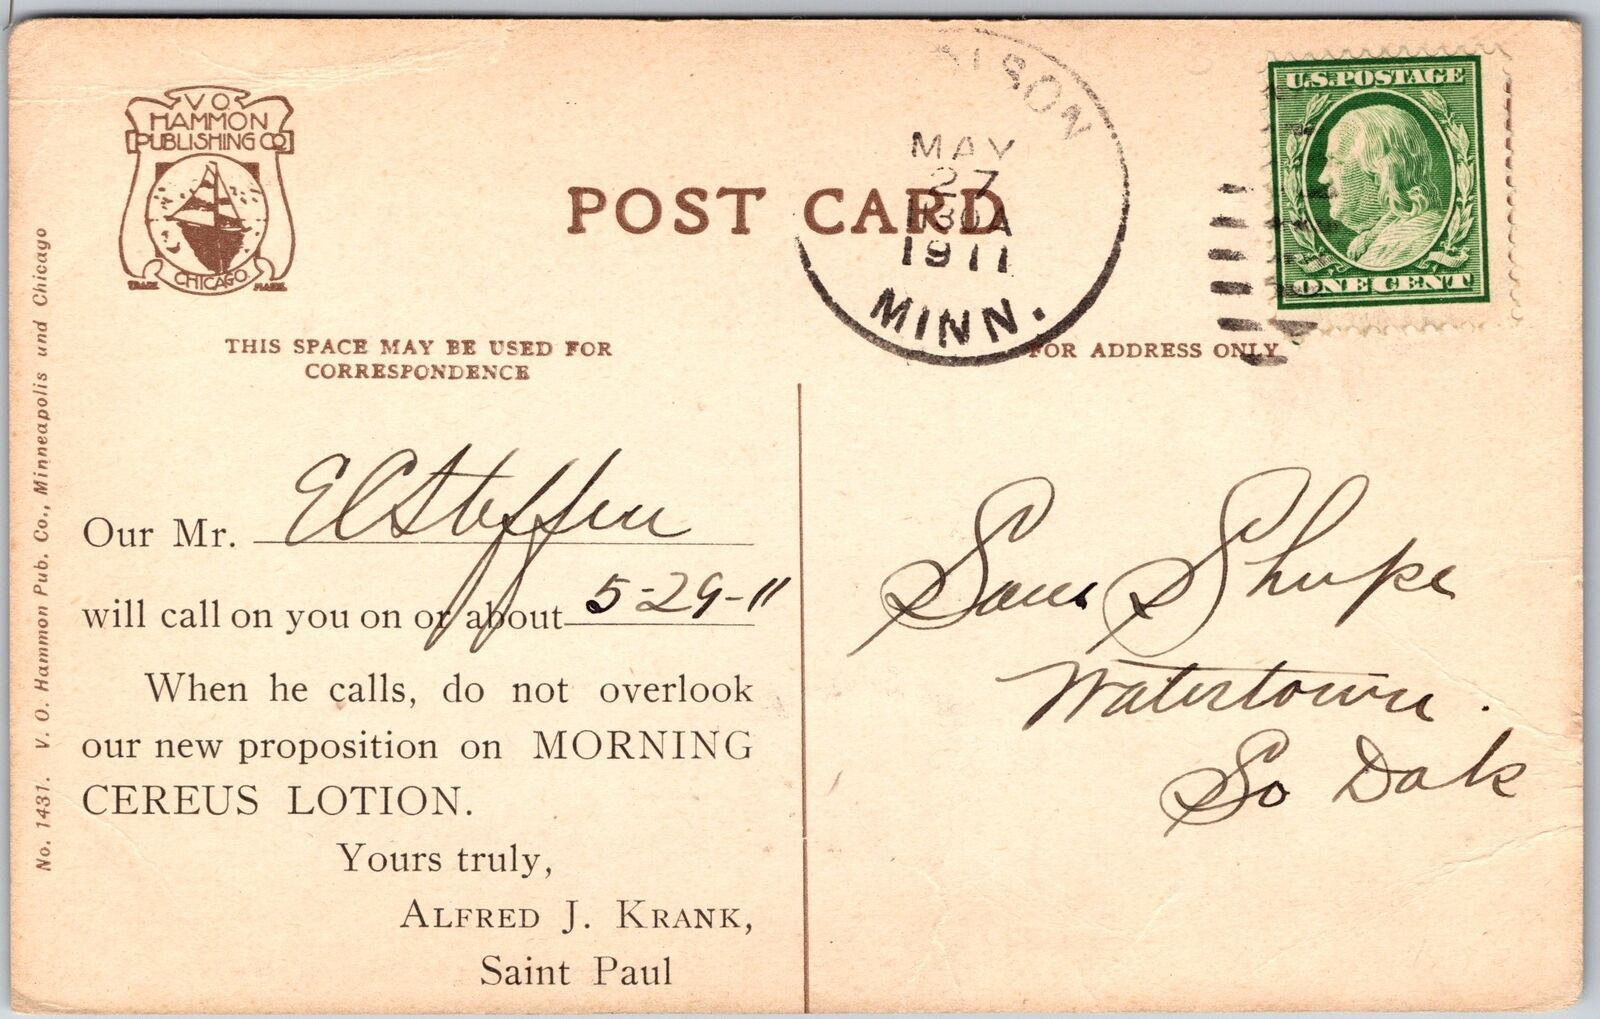 V O
HAMMON
PUBLISHING CO
CHICAGO
TRADE MARK
POST CARD
MAY
27
1911
MINN.
U.S. POSTAGE
ONE CENT
THIS SPACE MAY BE USED FOR
CORRESPONDENCE
FOR ADDRESS ONLY
No. 1431. V. O. Hammon Pub. Co., Minneapolis und Chicago
Our Mr. E C Steffen
will call on you on or about 5-29-11
When he calls, do not overlook
our new proposition on MORNING
CEREUS LOTION.
Yours truly,
ALFRED J. KRANK,
Saint Paul
Sam Shupe
Watertown.
So Dak